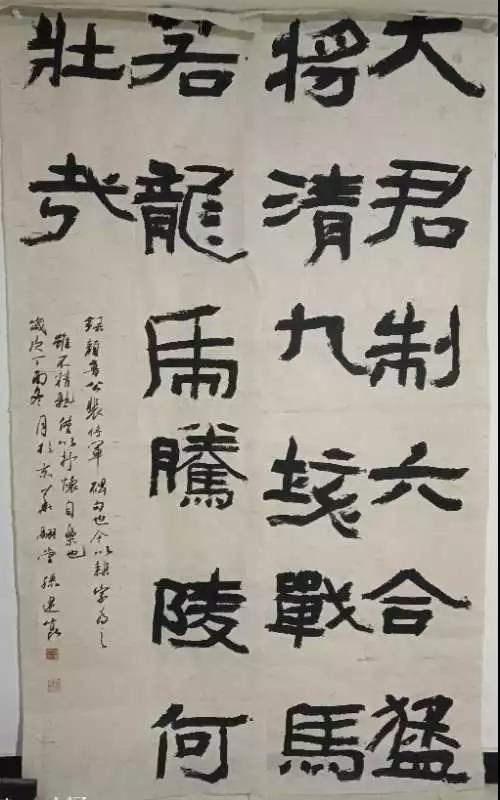 大君制六合猛
将清九垓戰馬
若龍虎騰陵何
壯哉
録顔魯公裴将軍碑句也今以隸字为之
雖不精熟僅以抒懷自樂也
歲次丁酉冬月於京華